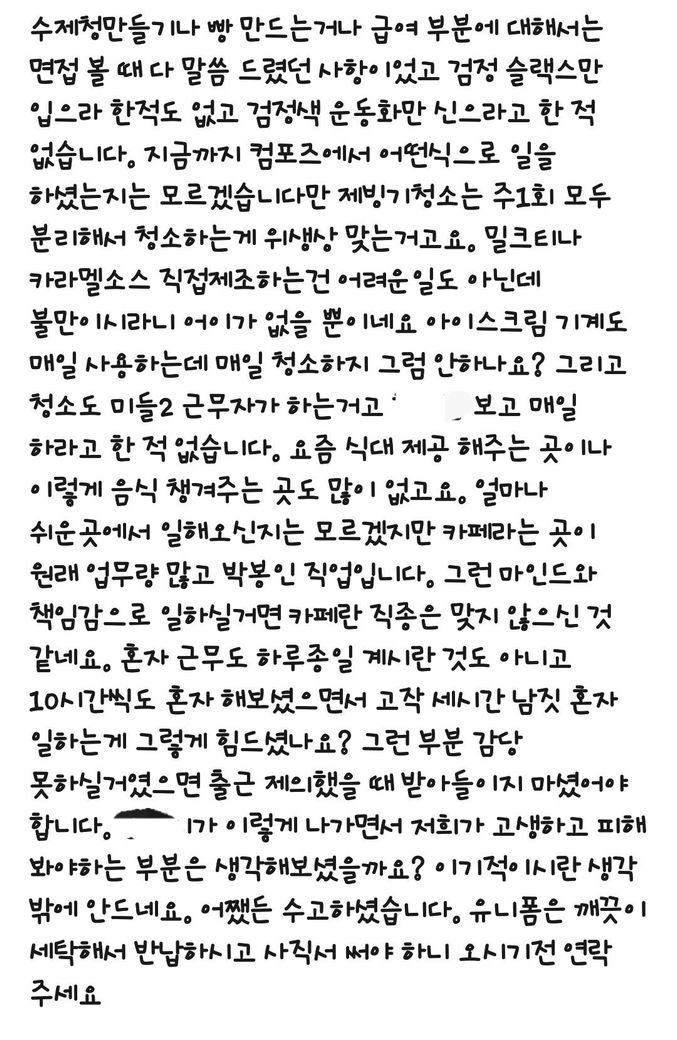 수제청만들기나 빵 만드는거나 급여 부분에 대해서는
면접 볼 때 다 말씀 드렸던 사항이었고 검정 슬랙스만
입으라 한적도 없고 검정색 운동화만 신으라고 한 적
없습니다. 지금까지 컴포즈에서 어떤식으로 일을
하셨는지는 모르겠습니다만 제빙기청소는 주1회 모두
분리해서 청소하는게 위생상 맞는거고요. 밀크티나
카라멜소스 직접제조하는건 어려운일도 아닌데
불만이시라니 어이가 없을 뿐이네요 아이스크림 기계도
매일 사용하는데 매일 청소하지 그럼 안하나요? 그리고
청소도 미들2 근무자가 하는거고 보고 매일
하라고 한 적 없습니다. 요즘 식대 제공 해주는 곳이나
이렇게 음식 챙겨주는 곳도 많이 없고요. 얼마나
쉬운곳에서 일해오신지는 모르겠지만 카페라는 곳이
원래 업무량 많고 박봉인 직업입니다. 그런 마인드와
책임감으로 일하실거면 카페란 직종은 맞지 않으신 것
같네요. 혼자 근무도 하루종일 계시란 것도 아니고
10시간씩도 혼자 해보셨으면서 고작 세시간 남짓 혼자
일하는게 그렇게 힘드셨나요? 그런 부분 감당
못하실거였으면 출근 제의했을 때 받아들이지 마셨어야
합니다. 가 이렇게 나가면서 저희가 고생하고 피해
봐야하는 부분은 생각해보셨을까요? 이기적이시란 생각
밖에 안드네요. 어쨌든 수고하셨습니다. 유니폼은 깨끗이
세탁해서 반납하시고 사직서 써야 하니 오시기전 연락
주세요